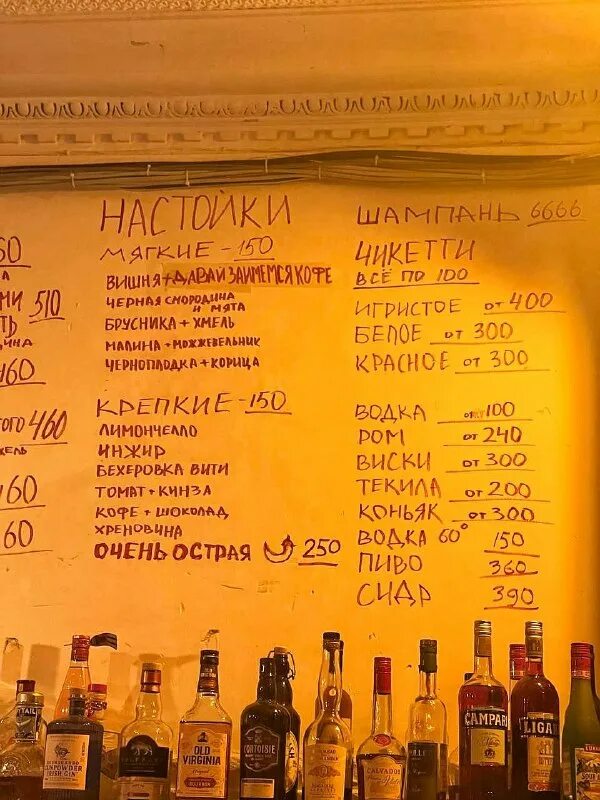 60
А
МИ 510
ТЬ
ИНА
460
ОГО 460
ЕЛЬ
460
60
НАСТОЙКИ
МЯГКИЕ - 150
ВИШНЯ + ДАВАЙ ЗАЙМЕМСЯ КОФЕ
ЧЕРНАЯ СМОРОДИНА
И МЯТА
БРУСНИКА + ХМЕЛЬ
МАЛИНА + МОЖЖЕВЕЛЬНИК
ЧЕРНОПЛОДКА + КОРИЦА
КРЕПКИЕ - 150
ЛИМОНЧЕЛЛО
ИНЖИР
БЕХЕРОВКА ВИТИ
ТОМАТ + КИНЗА
КОФЕ + ШОКОЛАД
ХРЕНОВИНА
ОЧЕНЬ ОСТРАЯ 250
ШАМПАНЬ 6666
ЧИКЕТТИ
ВСЁ ПО 100
ИГРИСТОЕ ОТ 400
БЕЛОЕ ОТ 300
КРАСНОЕ ОТ 300
ВОДКА ОТ 100
РОМ ОТ 240
ВИСКИ ОТ 300
ТЕКИЛА ОТ 200
КОНЬЯК ОТ 300
ВОДКА 60° 150
ПИВО 360
СИДР 390
GUNPOWDER
IRISH GIN
OLD
VIRGINIA
BOURBON
TORTOISE
CALVADOS
CAMPARI